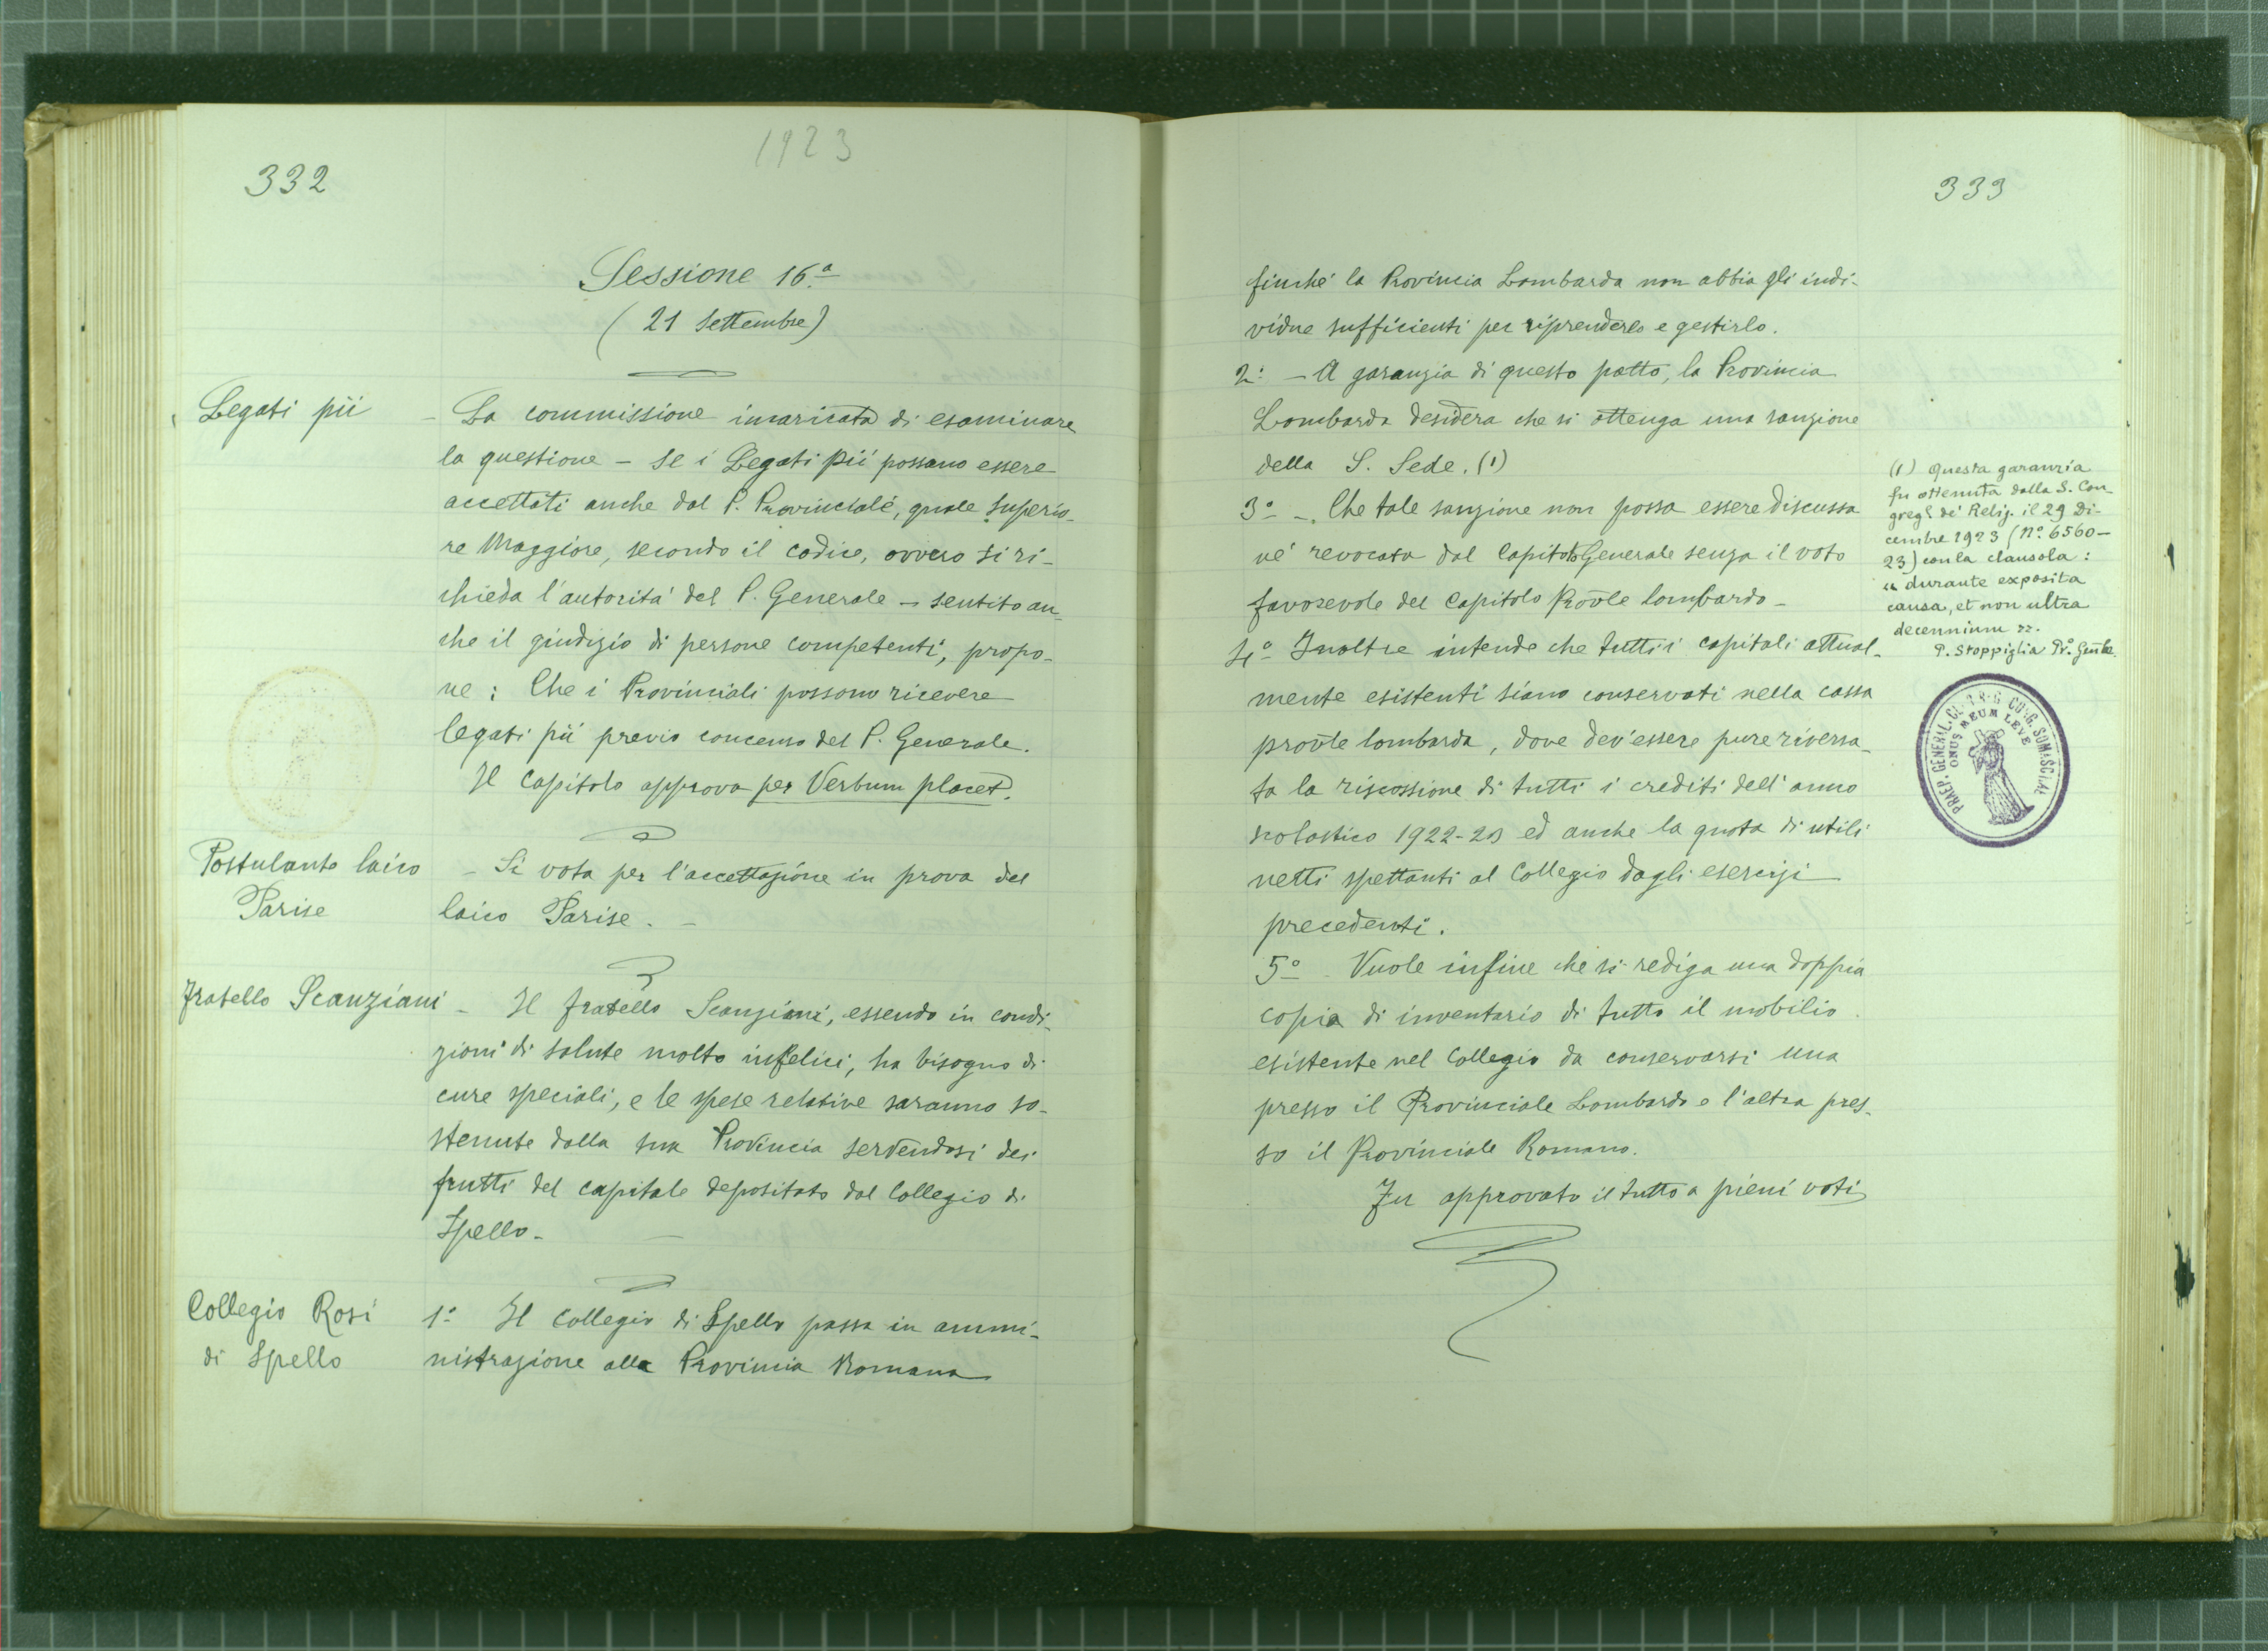 1923
332
Sessione 16.a
(21 Settembre)
Legati pii
- La commissione incaricata di esaminare
la questione - se i Legati pii possano essere
accettati anche dal P. Provinciale, quale superio-
re Maggiore, secondo il codice, ovvero si ri-
chieda l'autorità del P. Generale - sentito an-
che il giudizio di persone competenti, propo-
ne: Che i Provinciali possono ricevere
legati pii previo concenso del P. Generale.
Il Capitolo approva per Verbum placet.
Postulante laico
Parise
- Si vota per l'accettazione in prova del
laico Parise. -
Fratello Scanziani
- Il fratello Scanziani, essendo in condi-
zioni di salute molto infelici, ha bisogno di
cure speciali, e le spese relative saranno so-
stenute dalla sua Provincia servendosi dei
frutti del capitale depositato dal Collegio di
Spello. -
Collegio Rosi
di Spello
1.o Il Collegio di Spello passa in ammi-
nistrazione alla Provincia Romana
333
finchè la Provincia Lombarda non abbia gli indi-
vidue sufficienti per riprenderlo e gestirlo.
2.o - A garanzia di questo patto, la Provincia
Lombarda desidera che si ottenga una sanzione
della S. Sede. (1)
3.o - Che tale sanzione non possa essere discussa
nè revocata dal Capitolo Generale senza il voto
favorevole del Capitolo Prov̄le lombardo -
4.o Inoltre intende che tutti i capitali attual-
mente esistenti siano conservati nella cassa
prov̄le lombarda, dove dev'essere pure riversa-
ta la riscossione di tutti i crediti dell'anno
scolastico 1922-23 ed anche la quota di utili
netti spettanti al Collegio dagli esercizi
precedenti.
5.o Vuole infine che si rediga una doppia
copia di inventario di tutto il mobilio
esistente nel Collegio da conservarsi una
presso il Provinciale Lombardo e l'altra pres-
so il Provinciale Romano.
Fu approvato il tutto a pieni voti
(1) Questa garanzia
fu ottenuta dalla S. Con-
greg. de' Relig. il 29 Di-
cembre 1923 (N.o 6560-
23) con la clausola:
« durante exposita
causa, et non ultra
decennium ».
P. Stoppiglia Pr.o Gen̄le
PRAEP. GENERAL. CONG. SOMASCHAE
ONUS MEUM LEVE